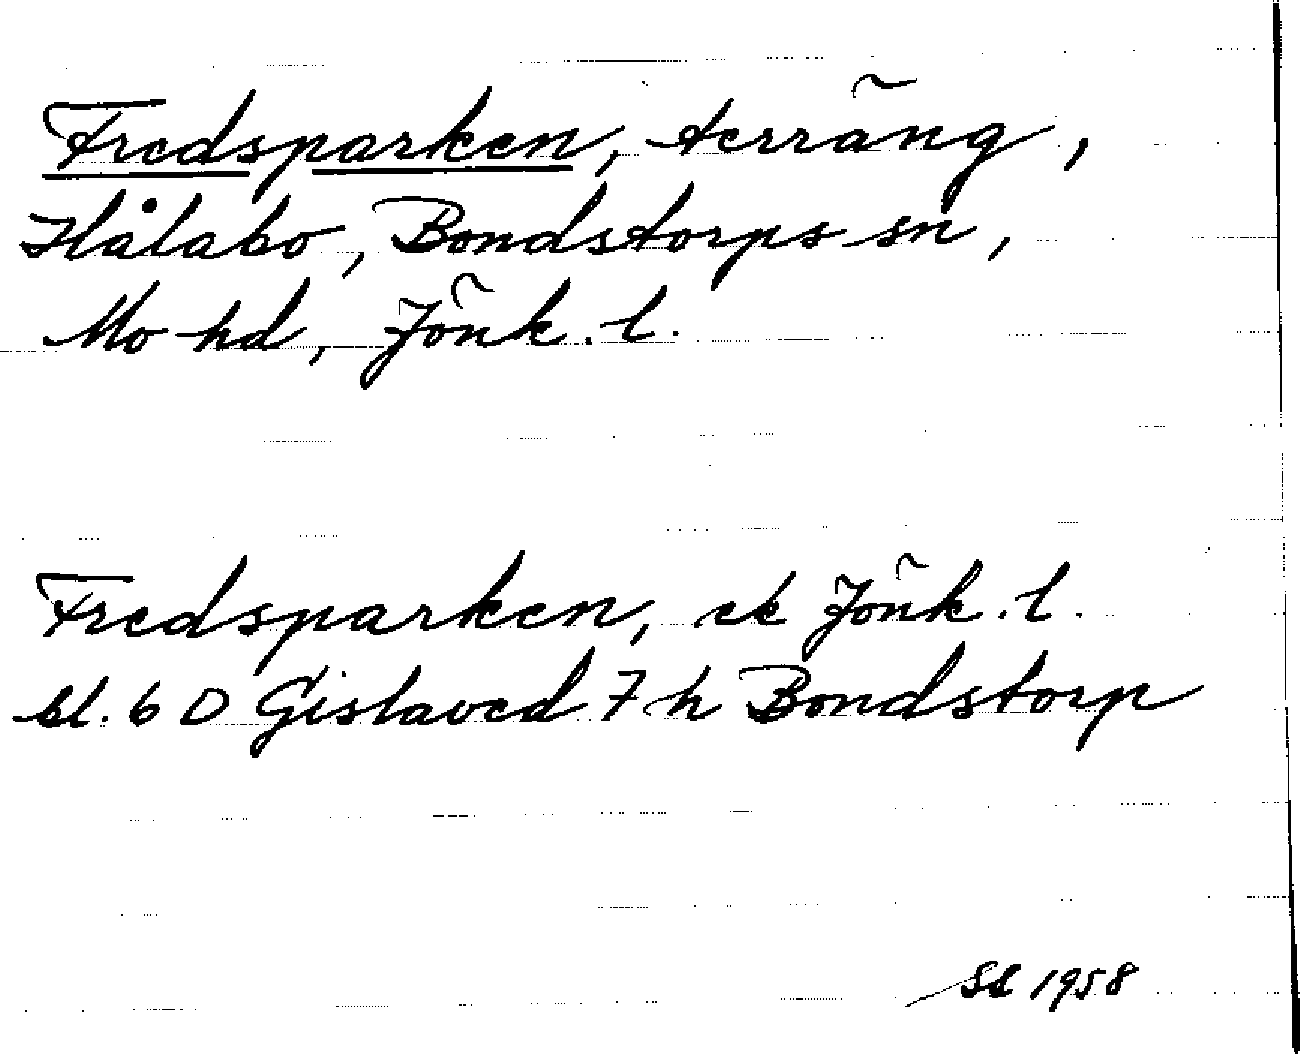 Fredsparken, terräng,
Hålabo, Bondstorps sn,
Mo hd, Jönk. l.
Fredsparken, ek Jönk. l.
bl. 6 D Gislaved 7 h Bondstorp
1958